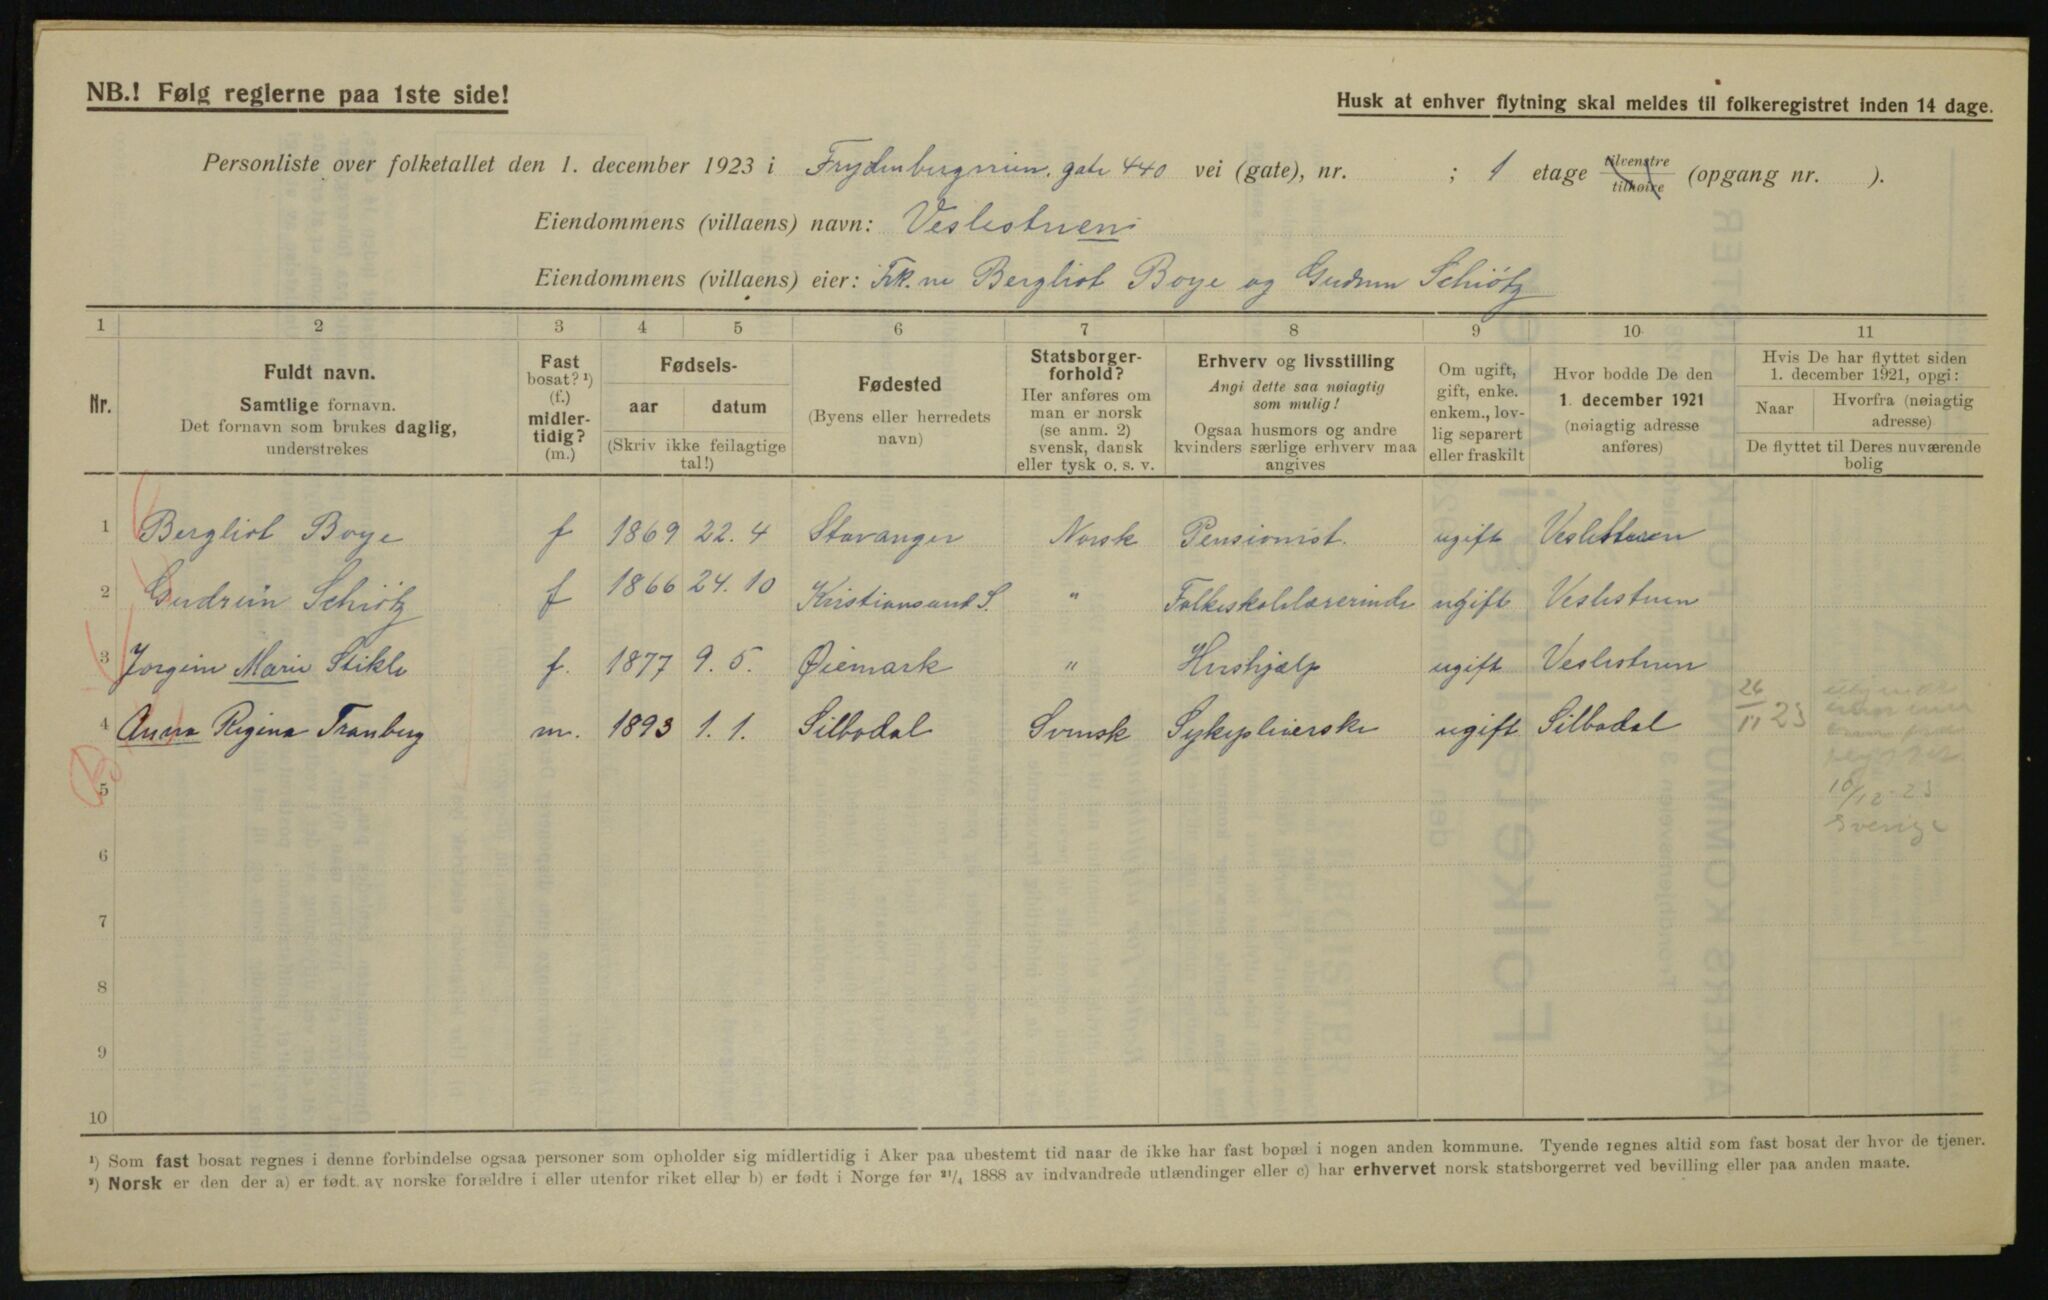 NB.! Følg reglerne paa 1ste side!
Husk at enhver flytning skal meldes til folkeregistret inden 14 dage.
Personliste over folketallet den 1. december 1923 i gate 440 vei (gate), nr. ; 1 etage tilvenstre tilhøire (opgang nr. ).
Eiendommens (villaens) navn: Veslestuen
Eiendommens (villaens) eier: Frk.ne Bergliot Boye og Gudrun Schiötz
1 2 3 4 5 6 7 8 9 10 11
Nr.
Fuldt navn.
Samtlige fornavn.
Det fornavn som brukes daglig,
understrekes
Fast
bosat? ¹)
(f.)
midler-
tidig?
(m.)
Fødsels-
aar datum
(Skriv ikke feilagtige
tal!)
Fødested
(Byens eller herredets
navn)
Statsborger-
forhold?
Her anføres om
man er norsk
(se anm. 2)
svensk, dansk
eller tysk o. s. v.
Erhverv og livsstilling
Angi dette saa nøiagtig
som mulig!
Ogsaa husmors og andre
kvinders særlige erhverv maa
angives
Om ugift,
gift, enke.
enkem., lov-
lig separert
eller fraskilt
Hvor bodde De den
1. december 1921
(nøiagtig adresse
anføres)
Hvis De har flyttet siden
1. december 1921, opgi:
Naar
Hvorfra (nøiagtig
adresse)
De flyttet til Deres nuværende
bolig
1 Bergliot Boye f 1869 22. 4 Stavanger Norsk Pensionist. ugift Veslestuen
2 Gudrun Schiötz f 1866 24. 10 Kristiansand S. " Folkeskolelærerinde ugift Veslestuen
3 Jorgine Marie Stikle f. 1877 9. 5. Øiemark " Hushjælp ugift Veslestuen
4 Anna Regina Tranberg m. 1893 1. 1. Silbodal Svensk Sykepleierske ugift Silbodal 26/11 23
10/12-23
Sverige
5
6
7
8
9
10
¹) Som fast bosat regnes i denne forbindelse ogsaa personer som opholder sig midlertidig i Aker paa ubestemt tid naar de ikke har fast bopæl i nogen anden kommune. Tyende regnes altid som fast bosat der hvor de tjener.
²) Norsk er den der a) er født av norske forældre i eller utenfor riket eller b) er født i Norge før 21/4 1888 av indvandrede utlændinger eller c) har erhvervet norsk statsborgerret ved bevilling eller paa anden maate.